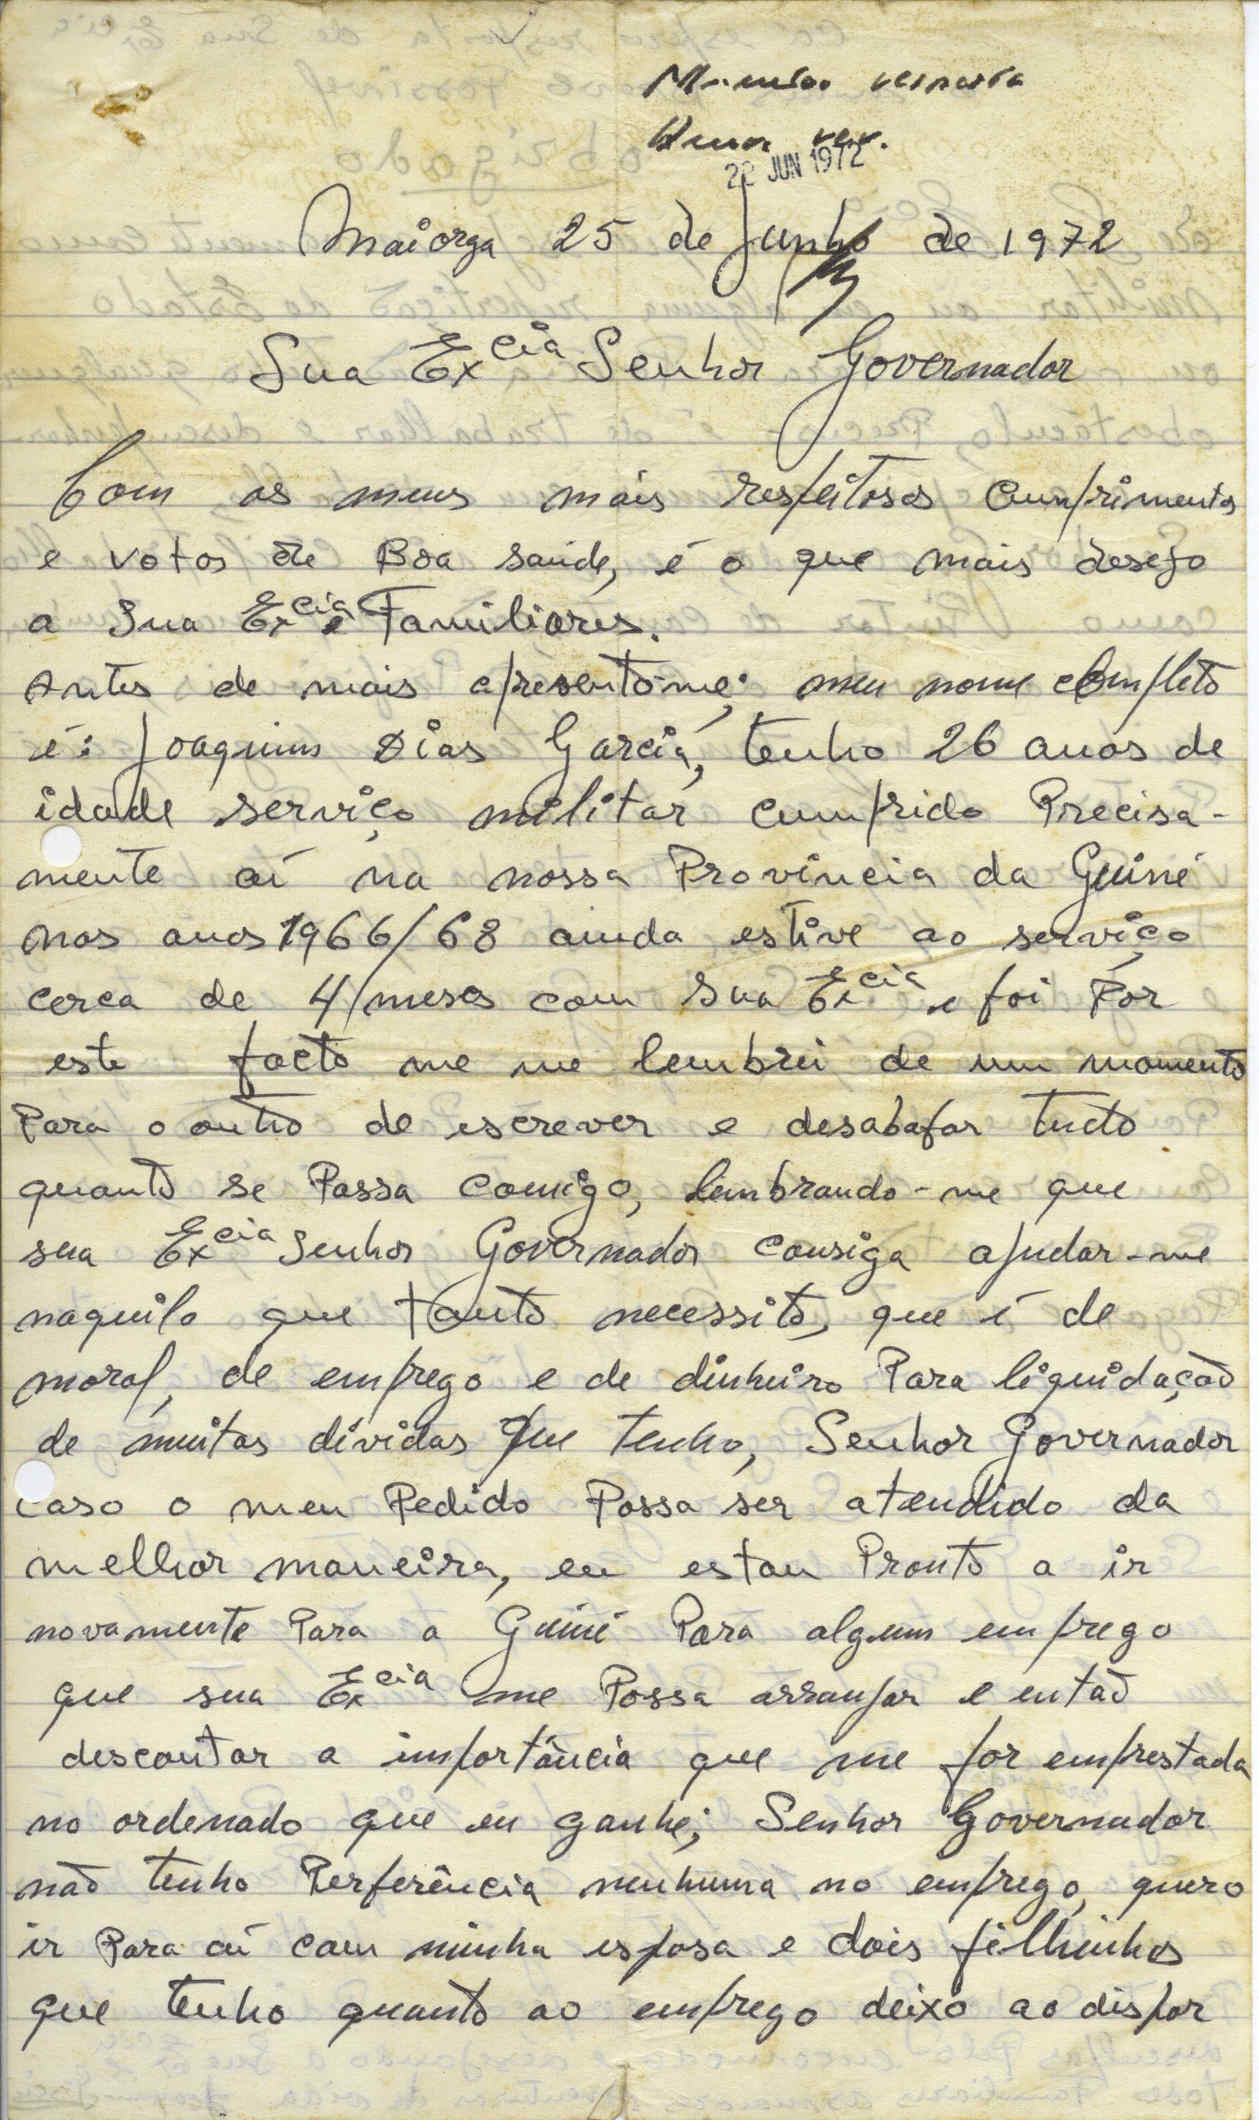 22 JUN 1972
Maiorga 25 de Junho de 1972
Sua Excia Senhor Governador
Com os meus mais respeitosos cumprimentos
e votos de Boa saúde, é o que mais desejo
a Sua Excia e Familiares.
Antes de mais apresento-me; meu nome completo
é: Joaquim Dias Garcia, tenho 26 anos de
idade serviço militar cumprido Precisa-
mente aí na nossa Província da Guiné
nos anos 1966/68 ainda estive ao serviço
cerca de 4 meses com Sua Excia e foi Por
este facto me me lembrei de um momento
Para o outro de escrever e desabafar tudo
quanto se Passa comigo, lembrando-me que
sua Excia Senhor Governador consiga ajudar-me
naquilo que tanto necessito, que é de
moral, de emprego e de dinheiro Para liquidação
de muitas dívidas que tenho, Senhor Governador
caso o meu Pedido Possa ser atendido da
melhor maneira, eu estou Pronto a ir
novamente Para a Guiné Para algum emprego
que sua Excia me Possa arranjar e então
descontar a importância que me for emprestada
no ordenado que eu ganhe; Senhor Governador
não tenho Perferência nenhuma no emprego, quero
ir Para aí com minha esposa e dois filhinhos
que tenho quanto ao emprego deixo ao dispor